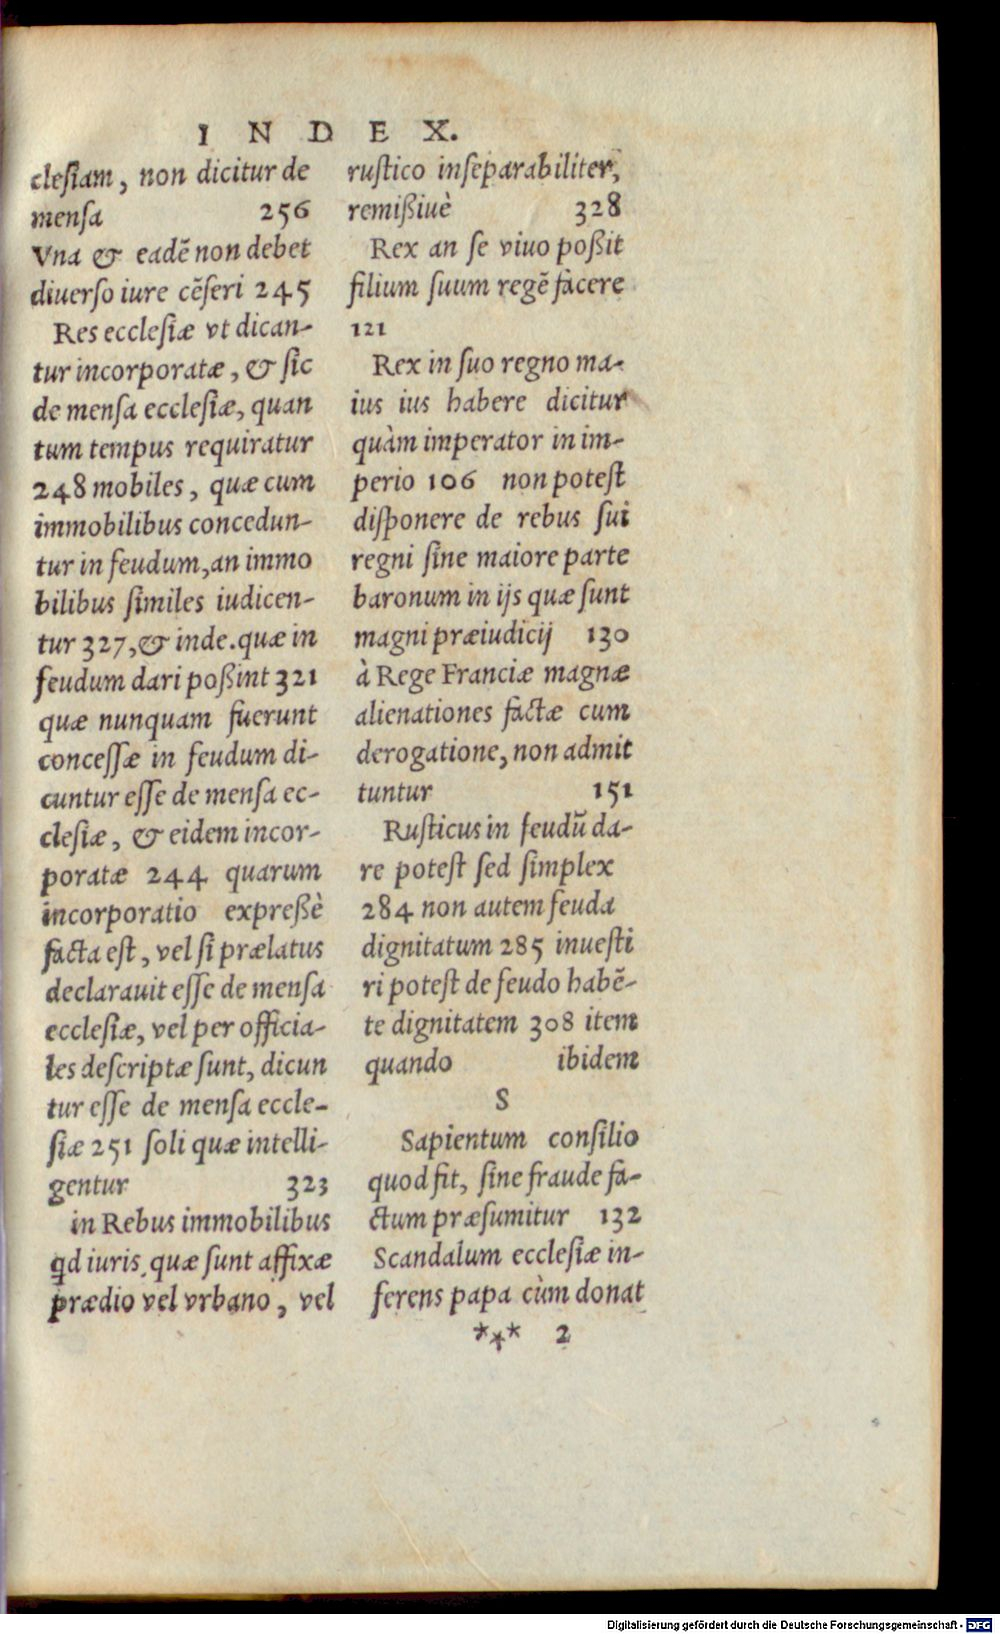 INDEX.
clesiam, non dicitur de
mensa 256
Vna & eadē non debet
diuerso iure cēseri 245
Res ecclesiæ vt dican-
tur incorporatæ, & sic
de mensa ecclesiæ, quan
tum tempus requiratur
248 mobiles, quæ cum
immobilibus concedun-
tur in feudum, an immo
bilibus similes iudicen-
tur 327, & inde. quæ in
feudum dari poßint 321
quæ nunquam fuerunt
concessæ in feudum di-
cuntur esse de mensa ec-
clesiæ, & eidem incor-
poratæ 244 quarum
incorporatio expreßè
facta est, vel si prælatus
declarauit esse de mensa
ecclesiæ, vel per officia-
les descriptæ sunt, dicun
tur esse de mensa eccle-
siæ 251 soli quæ intelli-
gentur 323
in Rebus immobilibus
qd iuris, quæ sunt affixæ
prædio vel vrbano, vel
rustico inseparabiliter,
remißiuè 328
Rex an se viuo poßit
filium suum regē facere
121
Rex in suo regno ma-
ius ius habere dicitur
quàm imperator in im-
perio 106 non potest
disponere de rebus sui
regni sine maiore parte
baronum in ijs quæ sunt
magni præiudicij 130
à Rege Franciæ magnæ
alienationes factæ cum
derogatione, non admit
tuntur 151
Rusticus in feudū da-
re potest sed simplex
284 non autem feuda
dignitatum 285 inuesti
ri potest de feudo habē-
te dignitatem 308 item
quando ibidem
S
Sapientum consilio
quod fit, sine fraude fa-
ctum præsumitur 132
Scandalum ecclesiæ in-
ferens papa cùm donat
*** 2
Digitalisierung gefördert durch die Deutsche Forschungsgemeinschaft - DFG